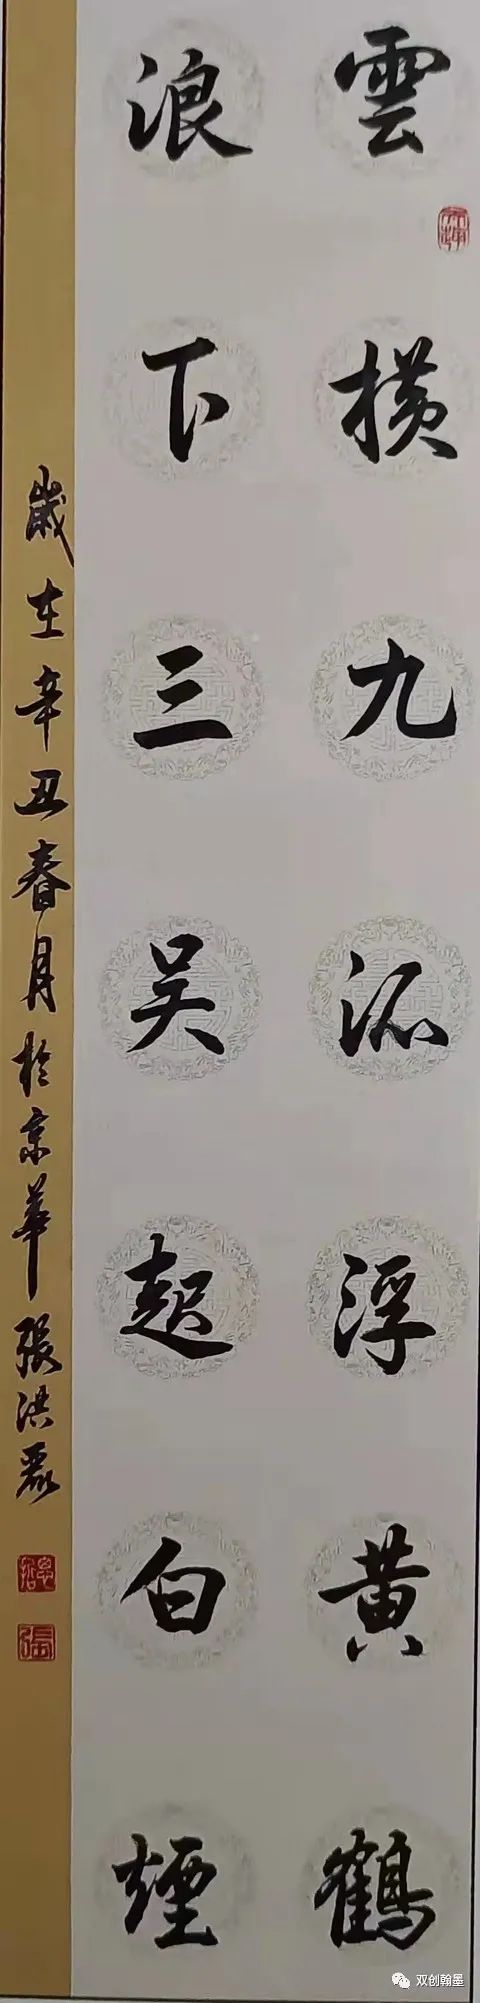 雲橫九派浮黄鶴
浪下三吴起白煙
歲在辛丑春月於京華張洪麗
双创翰墨